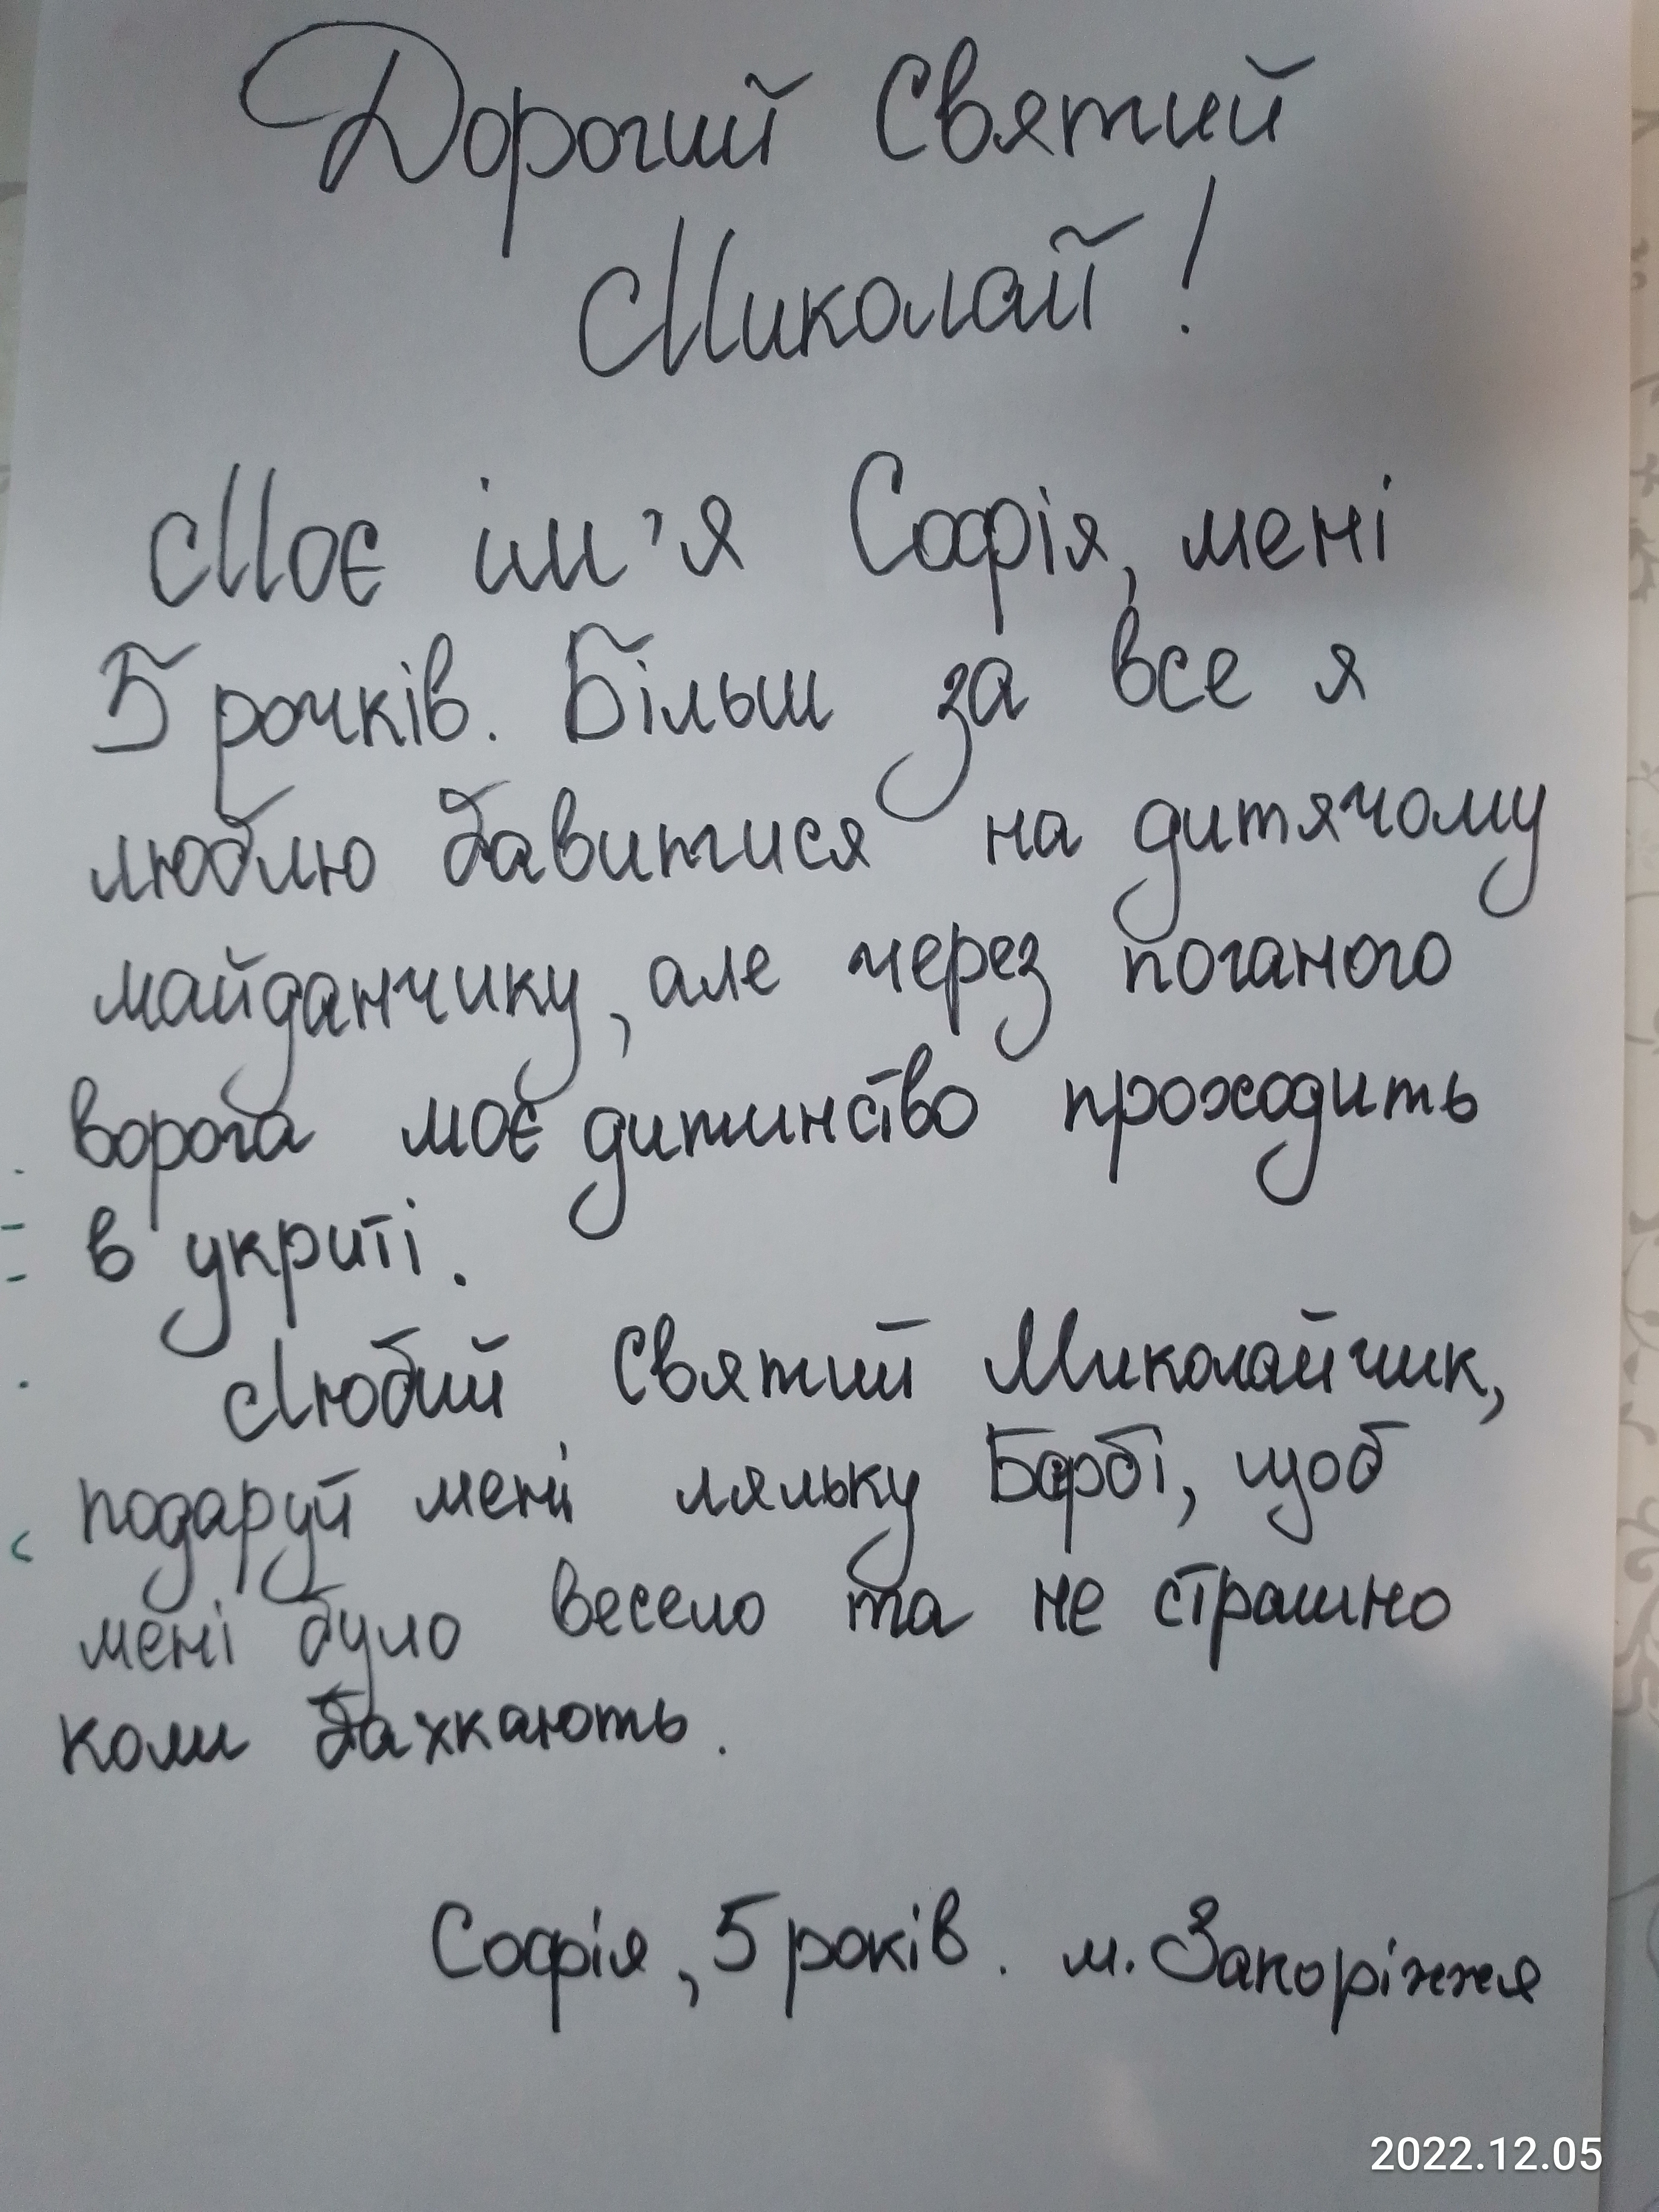 Дорогий Святий
Миколай!
Моє ім'я Софія, мені
5 рочків. Більш за все я
люблю бавитися на дитячому
майданчику, але через поганого
ворога моє дитинство проходить
в укриті.
Любий Святий Миколайчик,
подаруй мені ляльку Барбі, щоб
мені було весело та не страшно
коли бахкають.
Софія, 5 років. м. Запоріжжя
2022.12.05